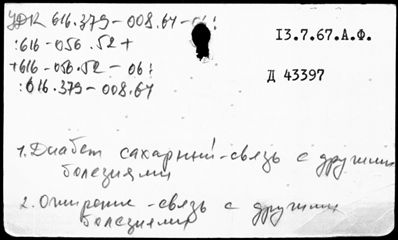 УДК 616.379-008.64-06:
:616-056.52+
+616-056.52-06:
:616.379-008.64
13.7.67.А.Ф.
Д 43397
1. Диабет сахарный-связь с другими
болезнями
2. Ожирение -связь с другими
болезнями